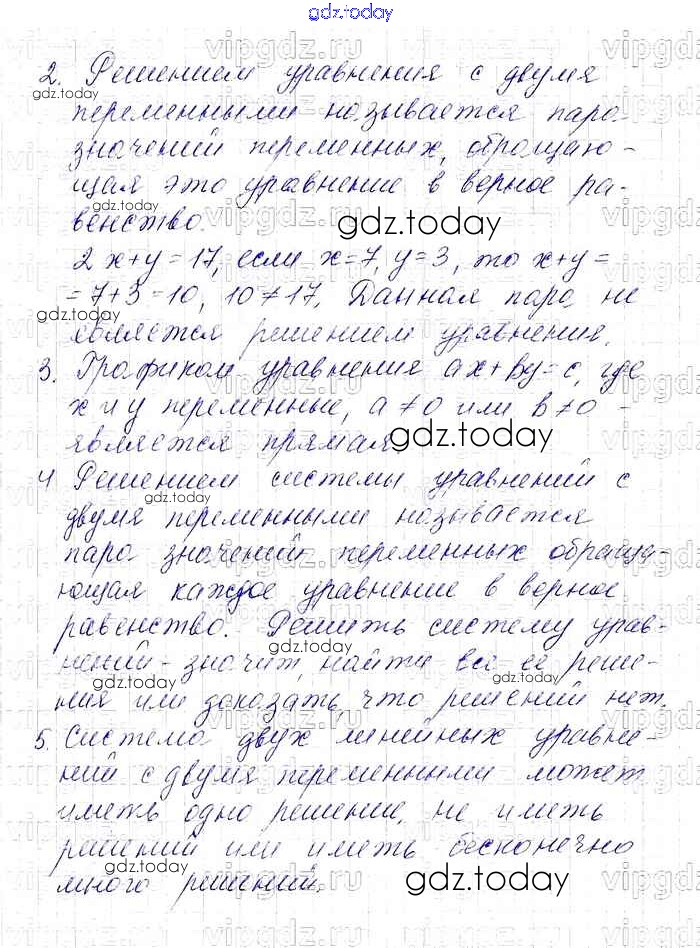 gdz.today
2. Решением уравнения с двумя
переменными называется пара
значений переменных, обращаю-
щая это уравнение в верное ра-
венство.
gdz.today
2x+y=17, если x=7, y=3, то x+y=
=7+3=10, 10≠17. Данная пара не
является решением уравнения.
3. Графиком уравнения ax+by=c, где
x и y переменные, a≠0 или b≠0 -
является прямая.
gdz.today
4. Решением системы уравнений с
двумя переменными называется
пара значений переменных обраща-
ющая каждое уравнение в верное
равенство. Решить систему урав-
нений - значит, найти все её реше-
ния или доказать, что решений нет.
5. Система двух линейных уравне-
ний с двумя переменными может
иметь одно решение, не иметь
решений или иметь бесконечно
много решений.
gdz.today